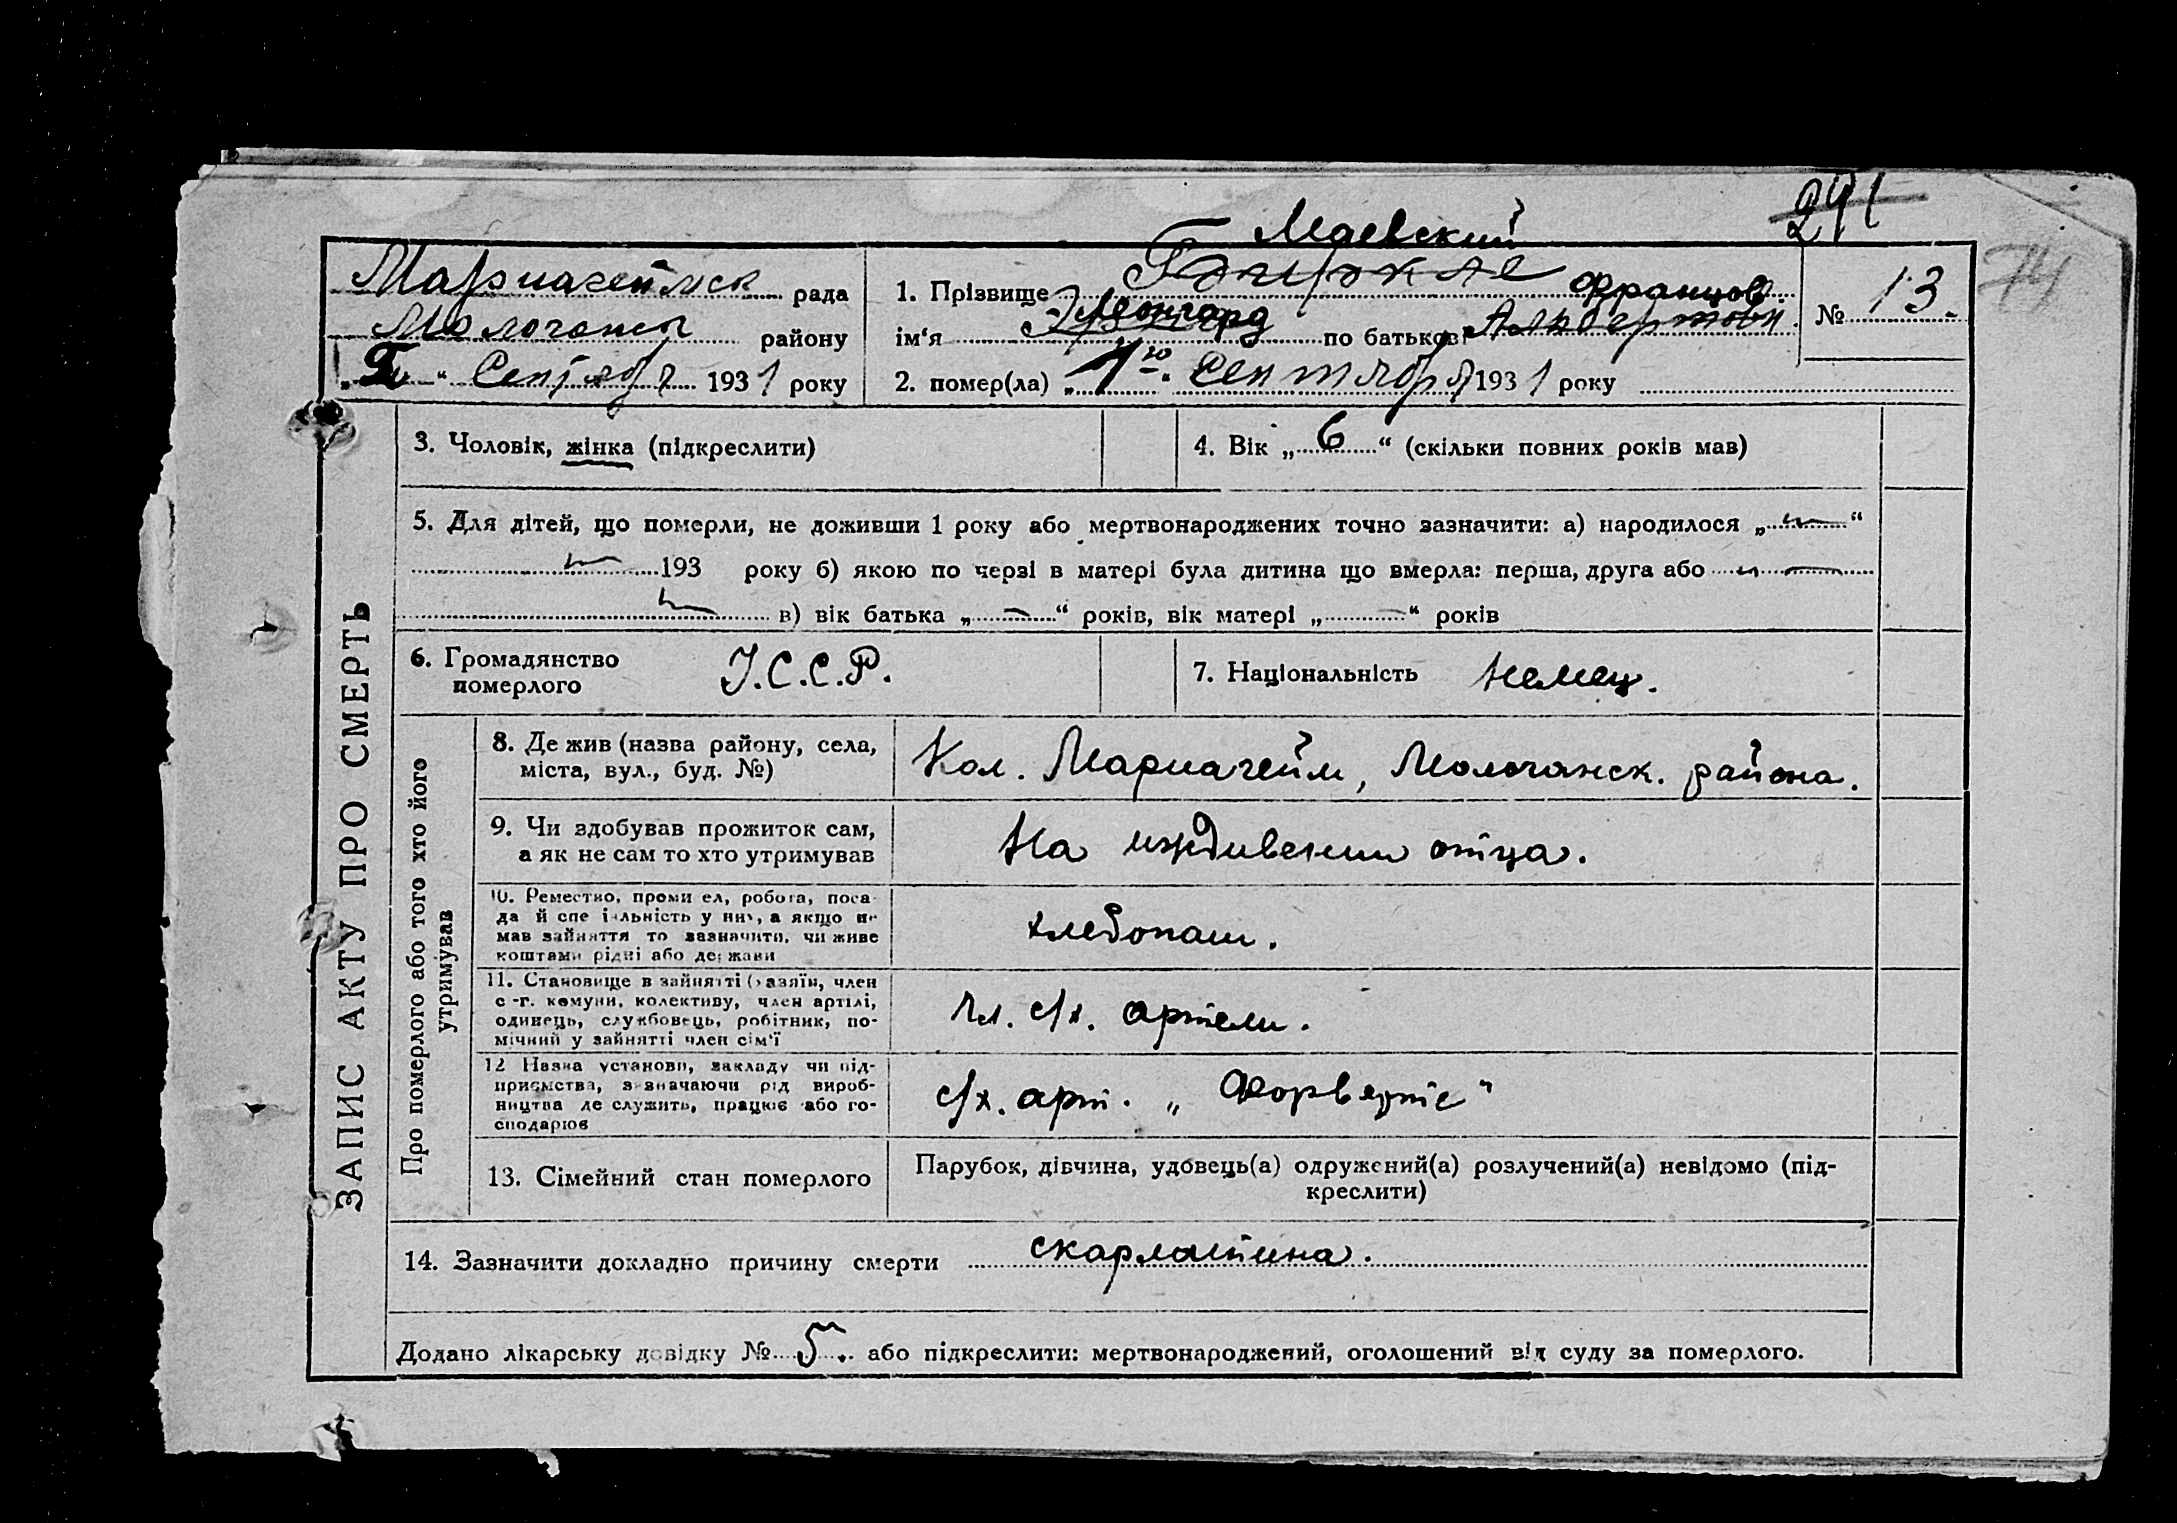 241
74
Маевский
Мариагеймск рада
1. Прізвище
Францов
№ 13.
Молочанск району
ім‘я Леонгард по батькові Альбертовн
„ “ Сентября 1931 року
2. помер(ла) „1го“ Сентября 1931 року
ЗАПИС АКТУ ПРО СМЕРТЬ
3. Чоловік, жінка (підкреслити)
4. Вік „6“ (скільки повних років мав)
5. Для дітей, що померли, не доживши 1 року або мертвонароджених точно зазначити: а) народилося „ “
193 року б) якою по черзі в матері була дитина що вмерла: перша, друга або
в) вік батька „—“ років, вік матері „—“ років
6. Громадянство
померлого
У.С.С.Р.
7. Національність немец.
Про померлого або того хто його
утримував
8. Де жив (назва району, села,
міста, вул., буд. №)
Кол. Мариагейм, Молочанск. района.
9. Чи здобував прожиток сам,
а як не сам то хто утримував
На иждивении отца.
10. Ремество, проми ел, робота, поса-
да й спе іальність у них, а якщо не
мав зайняття то зазначити, чи живе
коштами рідні або держави
хлебопаш.
11. Становище в зайнятті (хазяїн, член
с.-г. комуни, колективу, член артілі,
одинець, службовець, робітник, по-
мічний у зайнятті член сім‘ї
Чл. с/х. артели.
12 Назва установи, закладу чи під-
приємства, зазначаючи рід вироб-
ництва де служить, працює або го-
сподарює
с/х. арт. „Форвертс“
13. Сімейний стан померлого
Парубок, дівчина, удовець(а) одружений(а) розлучений(а) невідомо (під-
креслити)
14. Зазначити докладно причину смерти скарлатина.
Додано лікарську довідку № 5. або підкреслити: мертвонароджений, оголошений від суду за померлого.